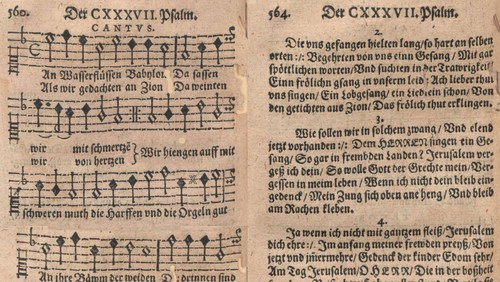 560. Der CXXXVII. Psalm.
CANTVS.
An Wasserflüssen Babylon. Da sassen
Als wir gedachten an Zion Da weinten
wir mit schmertzē
wir von hertzen } Wir hiengen auff mit
schweren muth die Harffen vnd die Orgeln gut
An ihre Bäwm der weiden D: drennen sind
564. Der CXXXVII. Psalm.
2.
Die vns gefangen hielten lang/so hart an selben
orten :/: Begehrten von vns einn Gesang/ Mit gar
spöttlichen worten/Vnd suchten in der Trawrigkeit
Einn frölichn gsang in vnserm leid: Ach lieber thut
vns singen/ Ein Lobgesang/ ein Liedlein schon/ Von
den getichten aus Zion/ Das frölich thut erklingen.
3.
Wie sollen wir in solchem zwang/ Vnd elend
jetzt vorhanden :/: Dem HERREN singen ein Ge-
sang/ So gar in frembden Landen? Jerusalem ver-
geß ich dein/ So wolle Gott der Grechte mein/ Ver-
gessen in meim leben/ Wenn ich nicht dein bleib ein-
gedenck/ Mein Zung sich oben ane heng/ Vnd bleib
am Rachen kleben.
4.
Ja wenn ich nicht mit gantzem fleiß/Jerusalem
dich ehre:/: Im anfang meiner frewden preyß/ Von
jetzt vnd jm̄er mehre/ Gedenck der kinder Edom sehr/
Am Tag Jerusalem/ O HERR/ Die in der boßheit